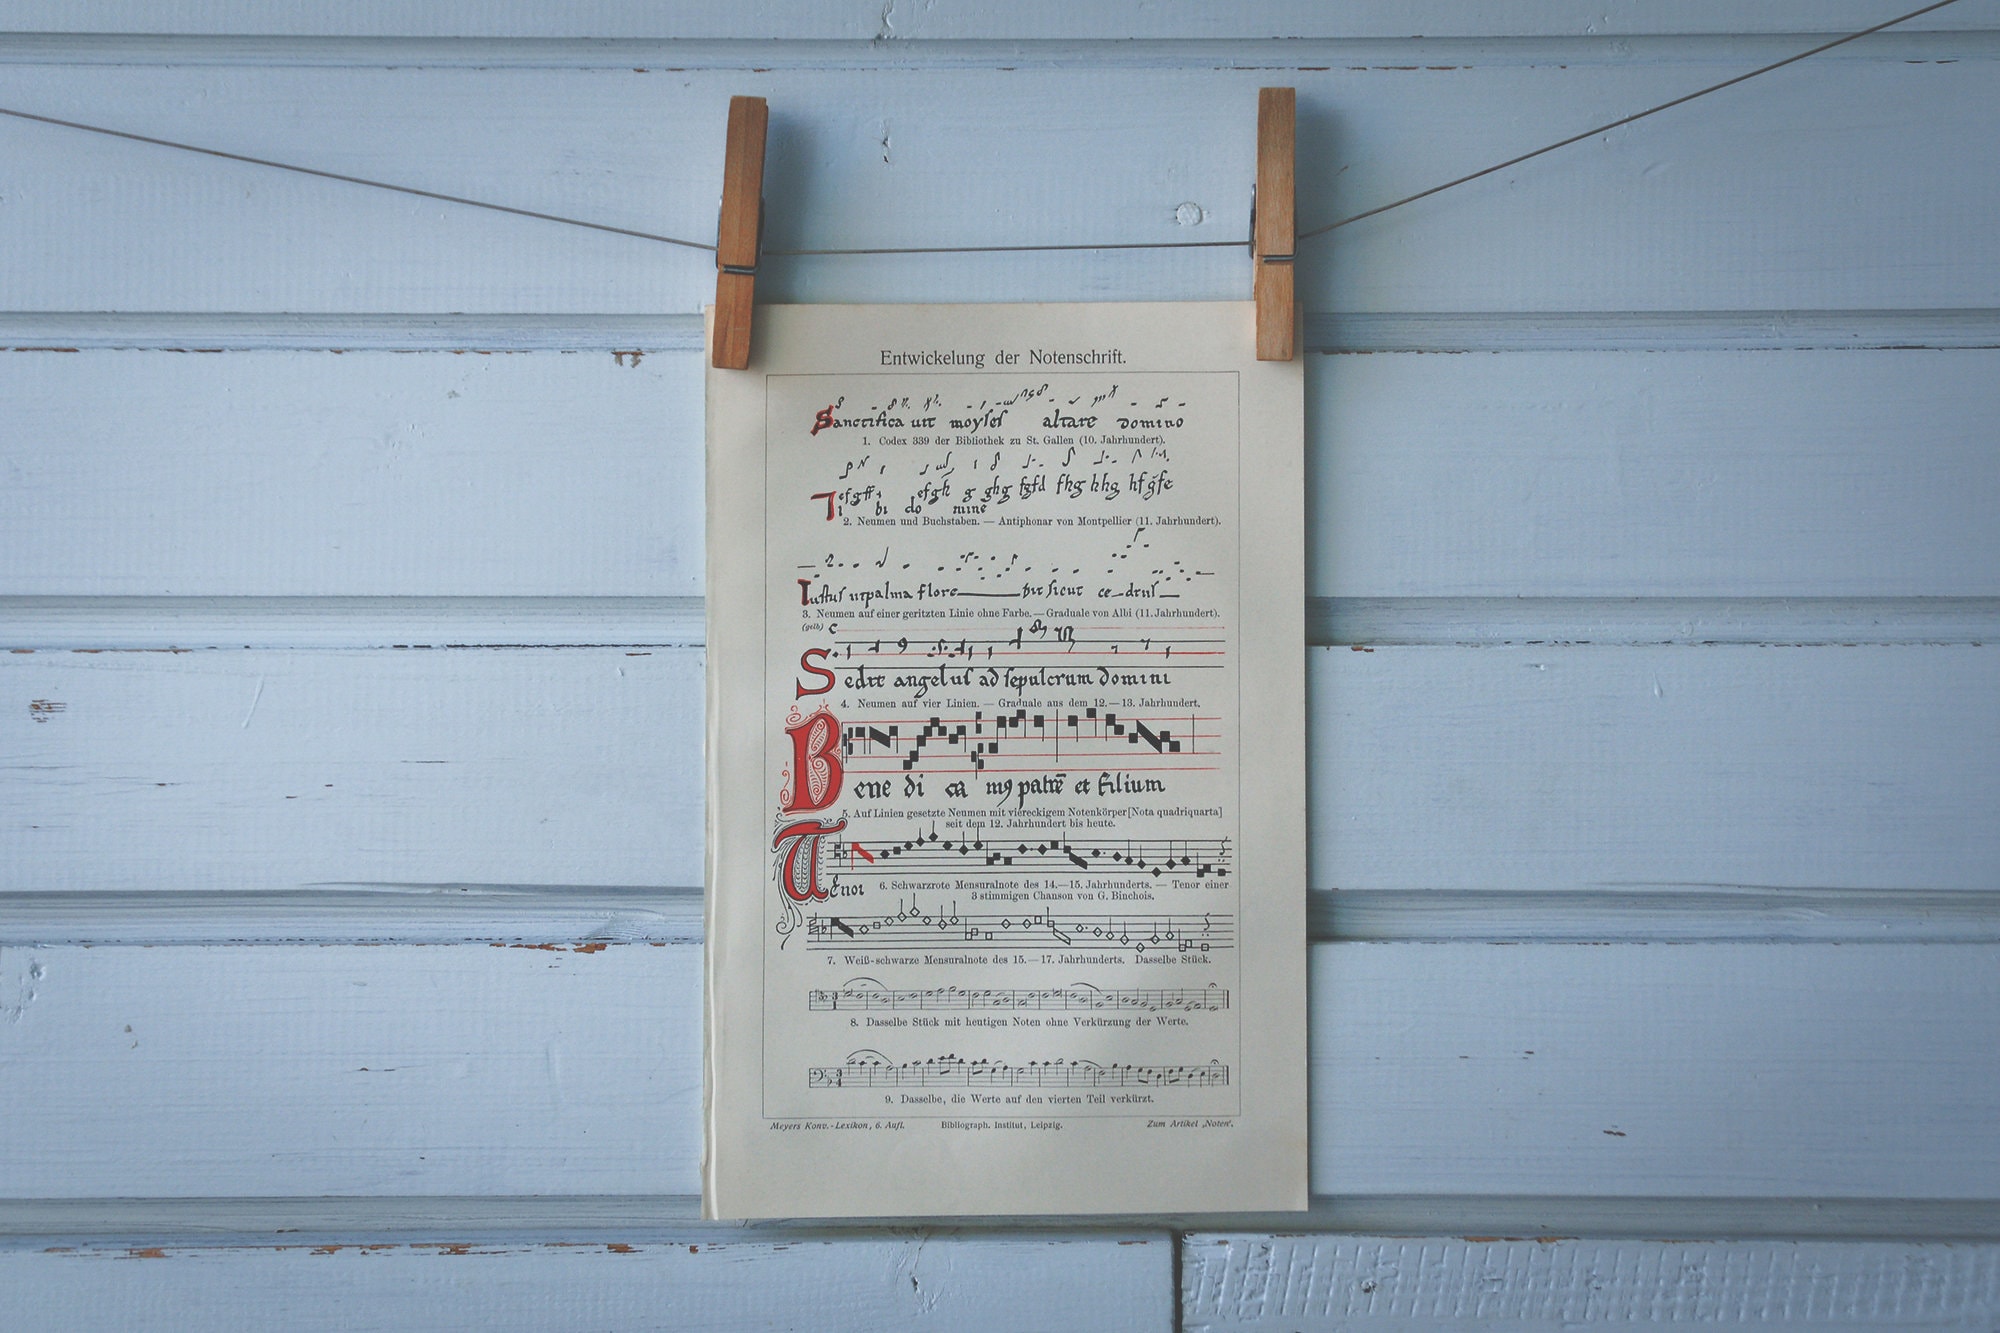 Entwickelung der Notenschrift.
Sanctificavit moyses altare domino
1. Codex 339 der Bibliothek zu St. Gallen (10. Jahrhundert).
efgff efgh g ghg fgfd fhg hhg hfgfe
Ti bi do mine
2. Neumen und Buchstaben. — Antiphonar von Montpellier (11. Jahrhundert).
Iustus utpalma flore bit sicut ce drus
3. Neumen auf einer geritzten Linie ohne Farbe. — Graduale von Albi (11. Jahrhundert).
(gelb) C
Sedit angelus ad sepulcrum domini
4. Neumen auf vier Linien. — Graduale aus dem 12.—13. Jahrhundert.
Bene di ca m9 patrē et filium
5. Auf Linien gesetzte Neumen mit viereckigem Notenkörper [Nota quadriquarta]
seit dem 12. Jahrhundert bis heute.
Tenor
6. Schwarzrote Mensuralnote des 14.—15. Jahrhunderts. — Tenor einer
3 stimmigen Chanson von G. Binchois.
7. Weiß-schwarze Mensuralnote des 15.—17. Jahrhunderts. Dasselbe Stück.
8. Dasselbe Stück mit heutigen Noten ohne Verkürzung der Werte.
9. Dasselbe, die Werte auf den vierten Teil verkürzt.
Meyers Konv.-Lexikon, 6. Aufl.
Bibliograph. Institut, Leipzig.
Zum Artikel ‚Noten‘.